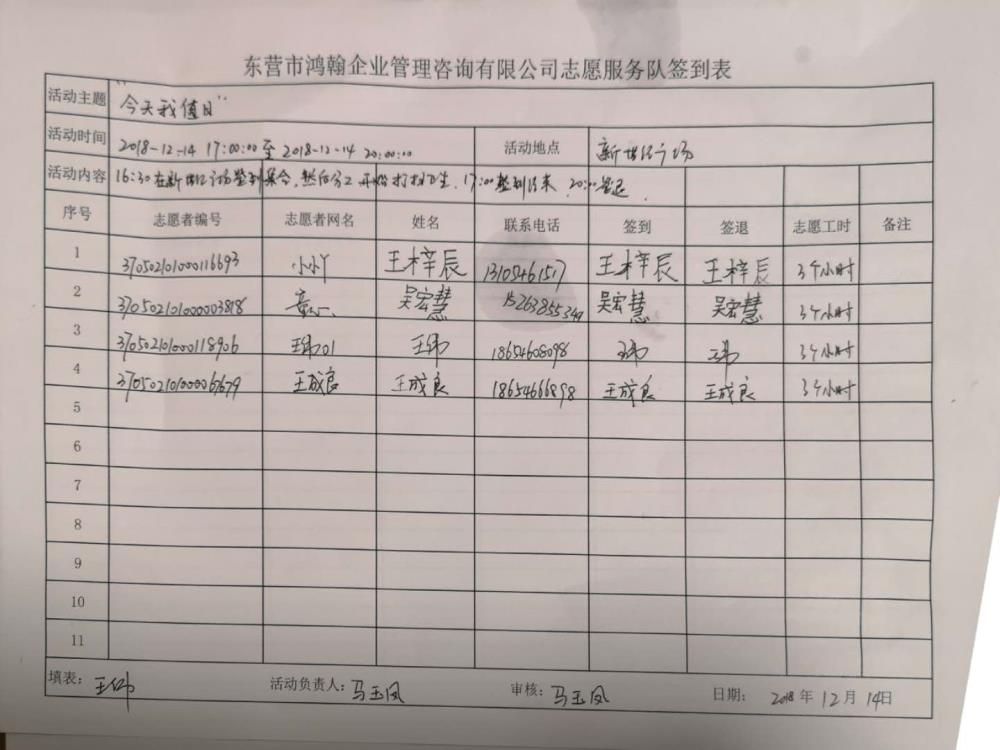 东营市鸿翰企业管理咨询有限公司志愿服务队签到表
活动主题 “今天我值日”
活动时间 2018-12-14 17:00:00至2018-12-14 20:00:00 活动地点 新世纪广场
活动内容 16:30在新世纪广场签到集合,然后分工开始打扫卫生,17:00签到结束,20:00签退.
序号 志愿者编号 志愿者网名 姓名 联系电话 签到 签退 志愿工时 备注
1 370502101000116693 小小丫 王梓辰 王梓辰 王梓辰 3个小时
2 370502101000003818 吴宏慧 15263855349 吴宏慧 吴宏慧 3个小时
3 370502101000118906 王伟01 王伟 18654608098 王伟 王伟 3个小时
4 王成良 王成良 18654666898 王成良 王成良 3个小时
5
6
7
8
9
10
11
填表: 王伟 活动负责人: 马玉凤 审核: 马玉凤 日期: 2018年12月14日